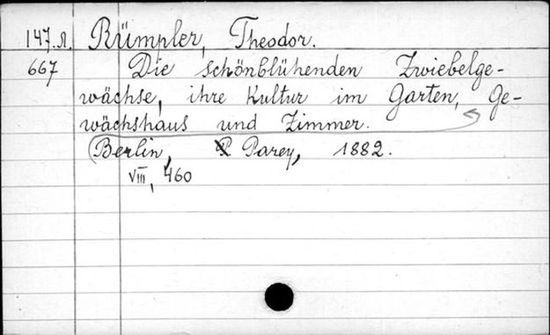 147.A. Rümpler, Theodor.
667 Die schönblühenden Zwiebelge-
wächse, ihre Kultur im Garten, Ge-
wächshaus und Zimmer.
Berlin, P Parey, 1882.
VIII, 460